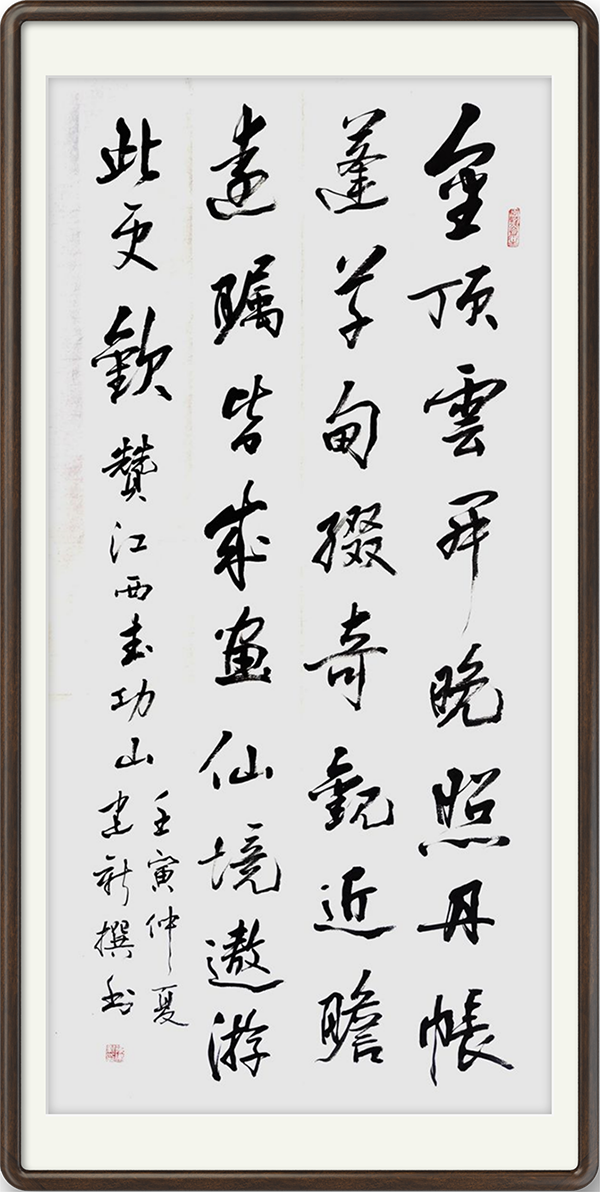 金顶雲开晚照丹帳
蓬草甸缀奇觀近瞻
遠瞩皆成畫仙境遨游
此更歡 贊江西武功山
壬寅仲夏
建新撰书